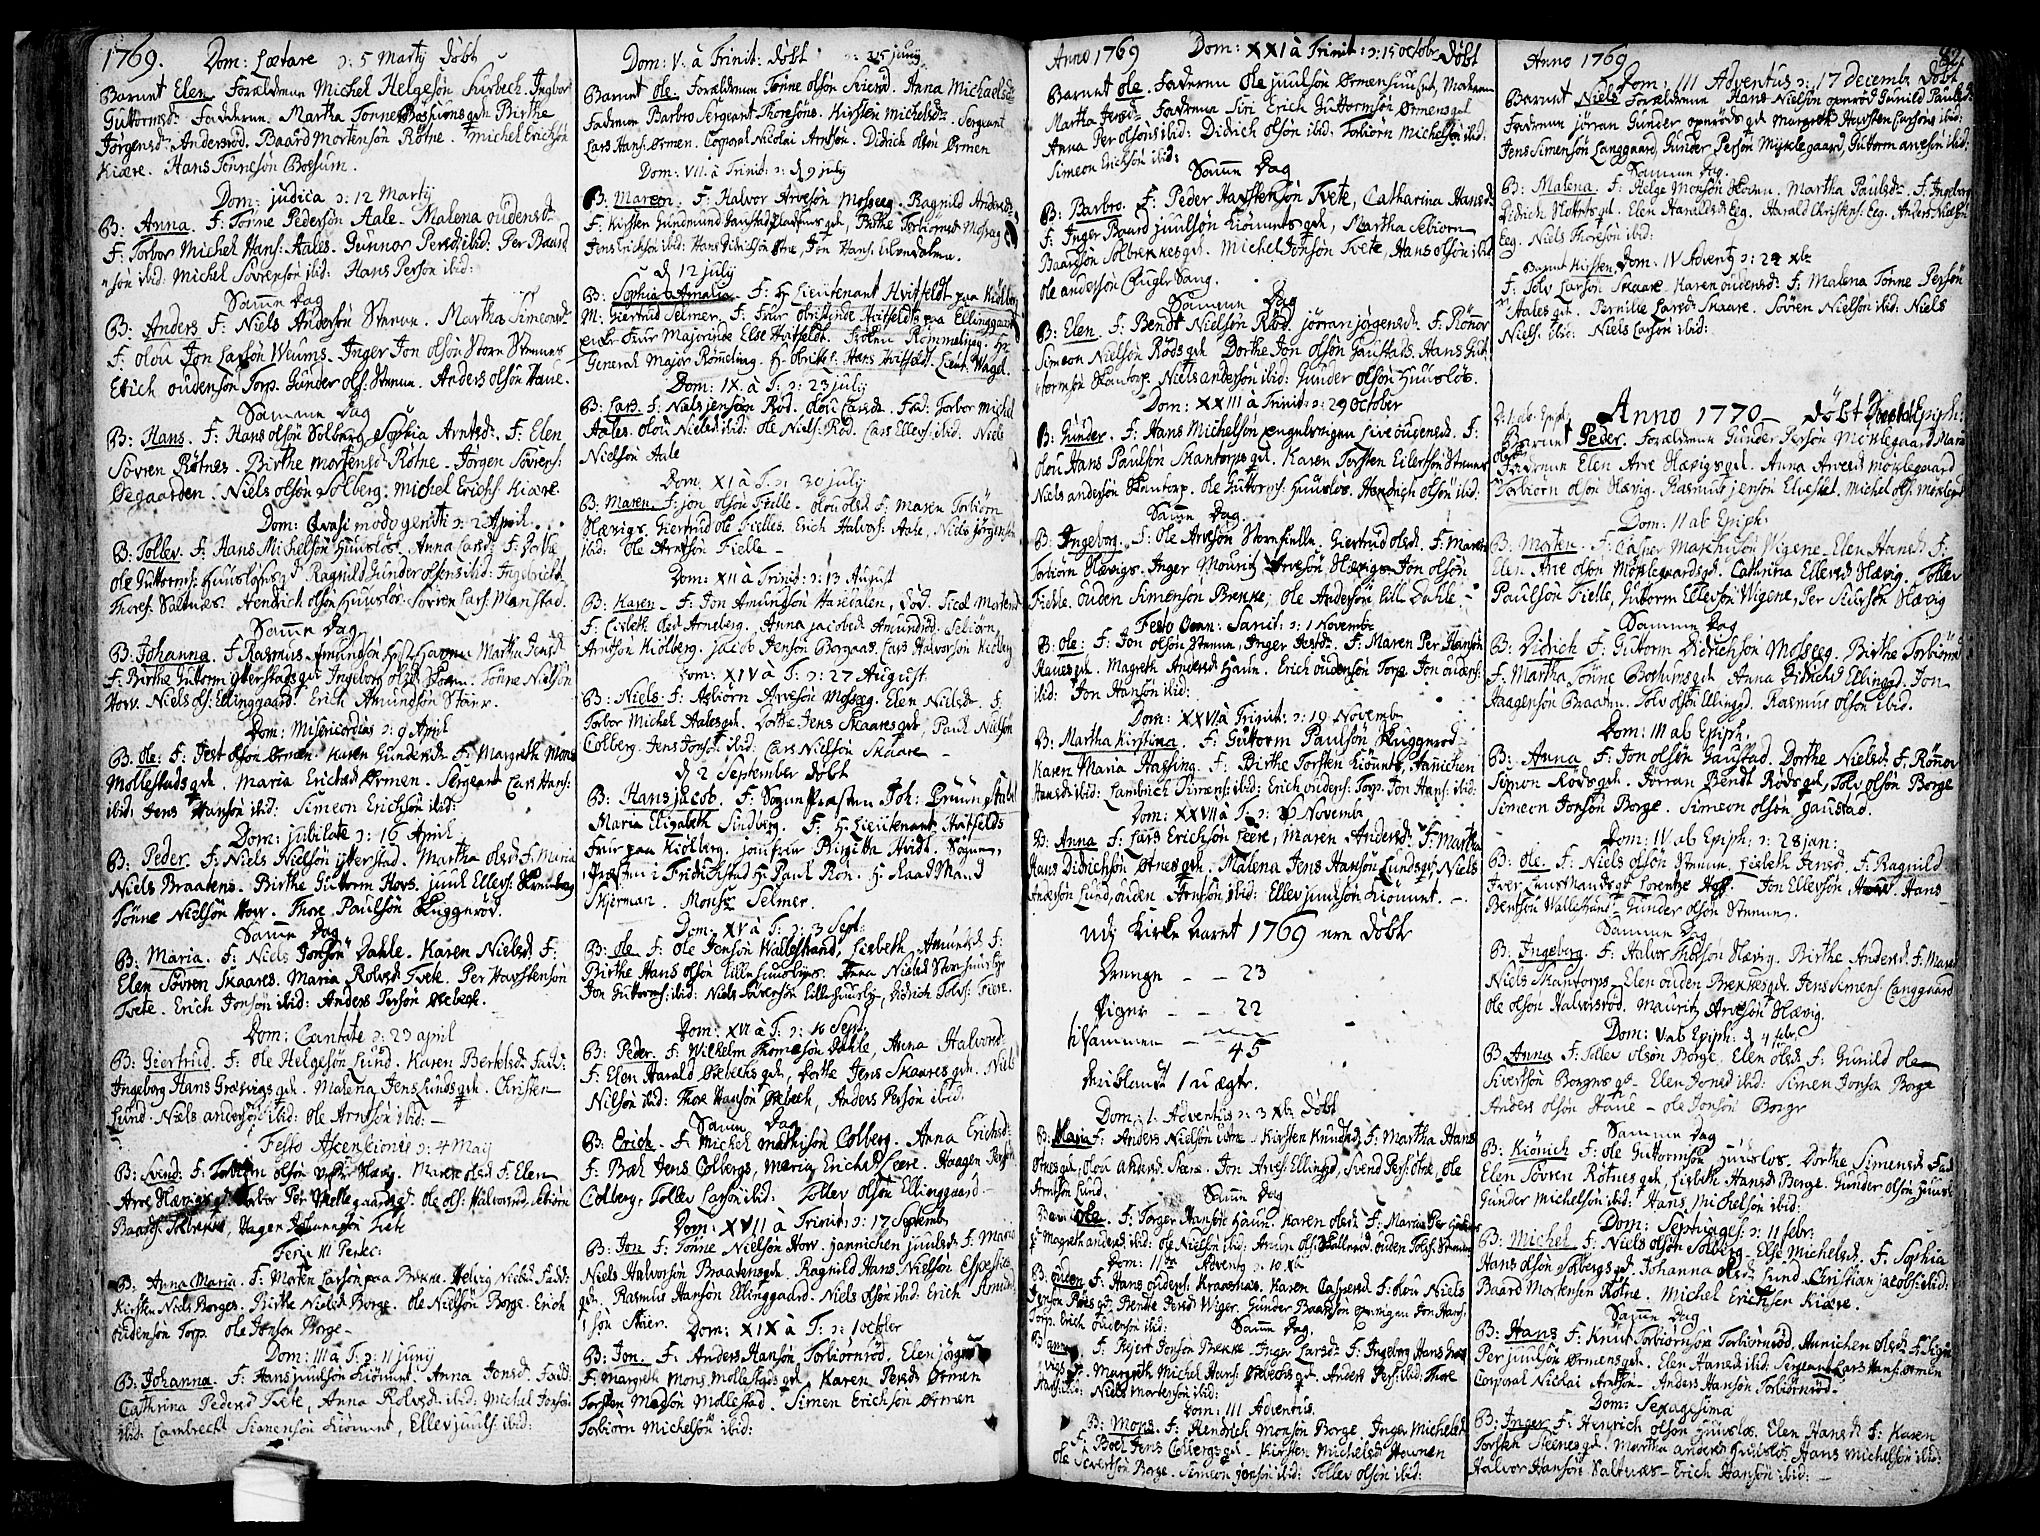 1769. Dom: Lætare ɔ: 5 Martij døbt
Barnet Elen. Forældrerne Michel Helgesön Surbech. Ingbor
Guttormsd: Fadderne. Martha Tönne Bossumsgd. Birthe
Jörgensd: Andersröd. Baard Mortensön Rötne. Michel Erichsön
Kiære. Hans Tönnesön Bossum.
Dom: judica ɔ: 12 Martij
B: Anna. F: Tönne Pedersön Aale. Malena oudensd:
F: Torbor Michel Hans: Aales. Gunnor Persd: ibid: Per Baard
sön ibid: Michel Sövrensön ibid: Hans Persön ibid:
Samme Dag
B: Anders F: Niels Andersön Stenun. Martha Simeonsd:
F: olou Jon Larsön Weums. Inger Jon olsön Store Stenun
Erich oudensön Torp. Gunder ols: Stenun. Anders olsön Haue.
Samme Dag
B: Hans. F: Hans olsön Solberg. Sophia Arntsd: F: Elen
Sövren Rötnes. Birthe Mortensd Rötne. Jörgen Sövrens:
Öegaarden. Niels olsön Solberg. Michel Erichs: Kiære.
Dom: Qvasi modo geniti ɔ: 2 April.
B: Tollev. F: Hans Michelsön Huuslös. Anna Larsd: F:
ole Guttorms: Huuslös gd Ragnild Gunder olsens ibid:
Thores: Saltnes. Hendrich olsön Huuslös. Sövren Lars: Manstad.
Samme Dag
B: Johanna. F: Rasmus Amundsön Martha Jensd
F: Birthe Guttorm ytterstadsgd Ingeborg olsd Tönne Nielsön
Hov. Niels ols: Ellinggaard. Erich Amundsön Stönr.
Dom: Misericordias ɔ: 9 April
B: Ole: F: Jest olsön Ørmen. Karen Gundersd: F: Margreth Mons
Mollestadsgd. Maria Erichsd Ørmen. Sergeant Lars Hans:
ibid: Jens Hansön ibid: Simeon Erichsön ibid:
Dom: jubilate ɔ: 16 April
B: Peder. F: Niels Nielsön ytterstad. Martha olsd F: Maria
Niels Braatens. Birthe Guttorm Hovs. juul Ellevs:
Tönne Nielsön Hov. Thore Paulsön Kuggeröd.
Samme Dag
B: Maria. F: Niels Jonsön Dahle. Karen Nielsd F:
Elen Sövren Skaares. Maria Rolvsd Tvete. Per Hovstensön
Tvete. Erich Jonsön ibid: Anders Persön Øebech.
Dom: Cantate ɔ: 23 april
B: Giertrud. F: Ole Helgesön Lund. Karen Bertelsd: Fad:
Ingeborg Hans Græsvigsgd. Malena Jens Lundsgd. Christen
Lund. Niels andersön ibid: ole Arntsön ibid:
Festo Ascensionis ɔ: 4 Maij
B: Svend: F: olsön Hævig. Maren olsd F: Elen
Arve Hævigsgd. Torbor Per ole ols: Halvorsröd, Sebiörn
Baards: Solbrekke, Hagen Johannsön Tvete
Feria III Pentec:
B: Anna Maria. F: Morten Larsön paa Brekke. Helvig Nielsd Fadd:
Kirsten Niels Borges. Birthe Nielsd Borge. ole Nielsön Borge. Erich
oudensön Torp. ole Jonsön Borge
Dom: III à T: ɔ: 11 junij
B: Johanna. F: Hans juulsön Kiönnit. Anna Jonsd: Fadd:
Cathrina Pedersd Tvete, Anna Rolvsd: ibid: Michel Jonsön
ibid: Lambrecht Simensön Kiönnit, Ellev juuls: ibid:
Dom: V. à Trinit: döbt ɔ: 25 junij
Barnet Ole. Forældrerne Tönne olsön Svieröd. Anna Michaelsd
Fadrene Barbro Sergeant Thoresöns. Kirsten Michelsd: Sergeant
Lars Hans: Ørmen. Corporal Nicolai Arntsön. Didrich olsön Ørmen
Dom: VII. à Trinit: ɔ: d 9 july
B: Maren. F: Halvor Arvesön Mosseeg. Ragnild Andersd:
F: Kirsten Gundmund gd, Birthe Torbiörnsd Mosseeg
Jens Erichsön ibid: Hans Didrichsön Øre, Jon Hans: Lilendalen.
d 12 july
B: Sophia Amalia. F: H Lieutenant Hvitfeldt paa Kiölberg
M: Giertrud Selmer. F: Frur obristinde Hvitfeldt paa Ellinggaard
Frur Majorinde Else Hvitfeldt. Frölen Rommeling. H:
General Major Römeling. H: obristl. Hans Hvitfeldt. Lieut: Wagel.
Dom: IX. à T: ɔ: 23 july
B: Lars. F: Niels jensön Röd. olou Larsd: Fad: Torbor Michel
Aales. olou Nielsd ibid: ole Niels: Röd. Lars Ellevs: ibid: Niels
Nielsön Aale
Dom: XI à T: ɔ: 30 july
B: Maren. F: jon olsön Fielle. olou olsd F: Maren Torbiörn
Hævigs. Giertrud ole Fielles. Erich Halvors: Aale, Niels Jörgensön
ibid: Ole Arntsön Fielle
Dom: XII à Trinit: ɔ: 13 August
B: Karen. F: Jon Amundsön Haredalen, Död. Sicel Mortensd
F: Lisbeth olsd Arneberg. Anna jacobsd Amundröd. Sebiörn
Arntsön Kiölberg. jacob Jensön Borgaas. Lars Halvorsön Kiölberg
Dom: XIV à T: ɔ: 27 August.
B: Niels: F: Asbiörn Arvesön Mosseeg. Elen Nielsd: F:
Torbor Michel Aalesgd. Dorthe Jens Skaaresgd. Paul Nielsön
Colberg. Jens Jonsön ibid: Lars Nielsön Skaare
d 2 September döbt
B: Hans jacob. F: SognePræsten Joh: Bruun p: Stabel
Maria Elizabeth Lindvig. F: H: Lieutenant Hvitfelds
frue paa Kiölberg. jomfrue Birgitta Hvidt. Sogne
Præsten i Fridrichstad H: Paul Rön. H: Raad Mand
Skierman. Monsr Selmer.
Dom: XV à T: ɔ: 3 Sept:
B: Ole F: Ole Jensön Wallestrand, Lisbeth Amundsd F:
Birthe Hans olsön Lille Huuslöses. Anna Nielsd Stor
Jon Guttorms: ibid: Niels Sövrensön Lille Didrich Tolvs: Fiere.
Dom: XVI à T: ɔ: 10 Sept:
B: Peder. F: Wilhelm Thomæsön Dahle, Anna Halvorsd:
F: Elen Harald Øebechs gd, Dorthe Jens Skaaresgd. Niels
Nilsön ibid: Thore Hansön Øebech, Anders Persön ibid:
Samme Dag
B: Erich. F: Michel Mathisön Colberg. Anna Erichsd:
F: Boel Jens Colbergs, Maria Erichsd Feere. Haagen Persön
Colberg. Tollev Larsön ibid: Tollev olsön Ellinggaard
Dom: XVII à Trinit: ɔ: 17 Septemb
B: Jon F: Tönne Nielsön Hov. jannichen juulsd: F: Maria
Niels Halvorsön Braatensgd. Ragnild Hans Nielsön Espeskies
gd. Rasmus Hansön Ellinggaard. Niels olsön ibid: Erich Amund
sön Stuer. Dom: XIX à T: ɔ: 1 october
B: Jon. F: Anders Hansön Torbiörnröd. Elen jörgensd
F: Margreth Mons Mollestads gd. Karen Persd Ørmen
Torsten Madsön Mollestad. Simen Erichsön Ørmen
Torbiörn Michelsön ibid:
Anno 1769 Dom: XXI à Trinit: ɔ: 15 octobr Döbt
Barnet Ole. Faderen Ole juulsön Ørmenhuuset, Moderen
Martha Fadrene Siri Erich Guttormsön Ørmensgd.
Anna Per olsöns ibid: Didrich olsön ibid: Torbiörn Michelsön ibid:
Simeon Erichsön ibid:
Samme Dag
B: Barbro. F: Peder Havstensön Tvete, Catharina Hansd
F: Inger Baard juulsön Kiönnitsgd, Martha Sebiörn
Baardsön Solbrekkesgd. Michel Jonsön Tvete, Hans olsön ibid
Ole andersön Fugle Sang.
Sammen Dag
B: Elen. F: Bendt Nielsön Röd. jörran jörgensd: F: Rönnor
Simeon Nielsön Rödsgd. Dorthe Jon olsön Gaustads. Hans Gut
tormsön Skantorp. Niels andersön ibid: Gunder olsön Huuslös.
Dom: XXIII à Trinit: ɔ: 29 October
B: Gunder. F: Hans Michelsön Engelsvigen Live oudensd. F:
olou Hans Paulsön Skantorps gd. Karen Torsten Eilertsön Stenun
Niels andersön Skantorp. Ole Guttorms: Huuslös. Hendrich olsön ibid:
Samme Dag.
B: Ingeborg. F: Ole Arvesön Storefielle. Giertrud olsd. F: Maren
Torbiörn Hævigs. Inger Mouritz Arvesön Hævigs. Jon olsön
Fielle. ouden Simensön Brekke, Ole Andersön Lille Dahle
Festo Omn: Sanct: ɔ: 1 Novemb:
B: Ole: F: Jon olsön Stenun, Inger Jestd: F: Maren Per Hansön
Hauesgd. Magreth Andersd Haun. Erich oudensön Torp. Jon oudens:
ibid: Jon Hansön ibid:
Dom: XXVI à Trinit: ɔ: 19 Novemb
B: Martha Kirstina. F: Guttorm Paulsön Kuggeröd
Karen Maria Hassing. F: Birthe Torsten Kiönnits, Hannichen
Hansd: ibid: Lambrich Simens: ibid: Erich oudens: Torp. Jon Hans: ibid:
Dom: XXVII à T: ɔ: 26 Novemb
B: Anna F: Lars Erichsön Feere, Maren Andersd: F: Martha
Hans Didrichsön Ørnes gd. Malena Jens Hansön Lundsgd: Niels
Andersön Lund, ouden Arntsön, ibid: Ellev juulsön Kiönnit.
Udj Kirke Aaret 1769 ere Döbte
Drenge — — 23
Piger — — 22
tilsammen — 45
Deriblandt 1 uægte.
Dom: 1. Adventus ɔ: 3 Xbr Döbt
B: Maria F: Anders Nielsön Kirsten Knudsd, F: Martha Hans
Ørnesgd, olou Jon Arves: Ellinggd, Svend Pers: Øbré, Ole
Arntsön Lund.
Samme Dag
Barnet Ole. F: Torger Hansön Haun. Karen olsd: F: Maria Per
gd Magreth andersd: ibid: Ole Nielsön ibid: ouden Tolfs: Stenun
Dom: II Advents ɔ: 10 Xbr
B: ouden F: Hans oudens: Kraaknes. Karen Caspersd F: olou Niels
Jensön Röds gd, Benthe Persd Wiger. Gunder Baardsön Jon Hans:
Torp. Erich oudensön ibid:
Samme Dag.
B: F: Hejert Jonsön Brekke. Inger Larsd: F: Ingeborg Hans Græs
vigs gd. Margreth Michel Hans: Øebechs gd. Anders Pers: ibid: Thore
Hans: ibid: Niels Mortensön ibid:
Dom: III Adventus.
B: Mons. F: Hendrich Monsön Borge. Inger Michelsd:
F: Boel Jens Colbergs gd. Kirsten Michelsd Hounen
Ole Sivertsön Borge. Simeon jonsön ibid: Tollev olsön ibid:
Anno 1769 82
Dom: III Adventus ɔ: 17 decemb: Döbt
Barnet Niels. Forældrerne Hans Nielsön openröd Gunild Paulsd:
Fadrene jörran Gunder openröds gd Margreth Havsten Larsöns ibid:
Jens Simensön Langgaard, Gunder Persön Myklegaard, Guttorm ibid:
Samme Dag.
B: Malena. F: Helge Monsön Martha Paulsd: F: Ingeborg
Didrich gd. Elen Haraldsd Eeg. Harald Christens: Eeg. Anders Nielsön
Eeg. Niels Thoresön ibid:
Barnet Kirsten Dom: IV Advent: ɔ: 24 xbr
F: Tolv Larsön Skaare. Karen oudensd: F: Malena Tönne Persön
Aales gd. Pernille Larsd: Skaare. Sövren Nielsön ibid: Niels
Niels: ibid: Niels Larsön ibid:
Anno 1770 — Döbt
D: 1. ab Epiph:
Barnet Peder. Forældrene Gunder Persön Myklegaard Maria
olsd Fadrene Elen Arve Hævigs gd. Anna Arvesd Myklegaard
Torbiörn olsön Hævig. Rasmus jensön Elvestad. Michel ols: Mykleg:
Dom: II ab Epiph:
B: Morten. F: Casper Mathisön Vigene. Elen Hansd F:
Elen Arve olsön Myklegaardsgd. Cathrina Ellevsd Hævig. Tollev
Paulsön Fielle, Guttorm Ellevsön Wigene, Per Siursön Hævig
Samme Dag
B: Didrich F: Guttorm Didrichsön Mosseeg. Birthe Torbiörnsd
F: Martha Tönne Bossums gd Anna Didrichsd Ellinggd. Jon
Haagensön Braaten. Tolv olsön Ellinggd. Rasmus olsön ibid.
Dom: III ab Epiph:
B: Anna F: Jon olsön Gaustad. Dorthe Nielsd: F: Rönnor
Simon Röds gd. Jörran Bendt Röds gd, Tolv olsön Borge
Simeon Jonsön Borge. Simeon olsön Gaustad.
Dom: IV ab Epiph: ɔ: 28 jan:
B: Ole. F: Niels olsön Stenun Lisbeth Jensd. F: Ragnild
Iver Lunsmands gd Lorentze Hals. Jon Ellevsön Hans
Bentsön Wallestrand. Gunder olsön Stenun.
Samme Dag
B: Ingeborg. F: Halvor Thorsön Hævig. Birthe Andersd: F: Maren
Niels Skantorps. Elen ouden Brekkes gd. Jens Simens: Langgaard
Ole olsön Halvorsröd. Mouritz Arvesön Hævig.
Dom: V ab Epiph: d 4 febr:
B: Anna F: Tollev olsön Borge. Elen olsd: F: Gunild ole
Sivertsön Borges gd. Elen Jonsd ibid: Simen Jonsön Borge
Anders olsön Haue — ole Jonsön Borge
Samme Dag
B: Kiönich F: Ole Guttormsön Huuslös. Dorthe Simensd: Fad
Elen Sövren Rötnes gd, Lisbeth Hansd: Borge. Gunder olsön Huusl:
Gunder Michelsön ibid: Hans Michelsön ibid:
Dom: Septuages: ɔ: 11 febr:
B: Michel. F: Niels olsön Solberg. Else Michelsd. F: Sophia
Hans olsön Solbergs gd. Johanna olsd: Lund Christian jacobs: ibid:
Baard Mortensön Rötne. Michel Erichsen Kiære.
Samme Dag
B: Hans F: Knut Torbiörnsön Torbiörnröd, Annichen olsd: F: Signe
Per juulsön Ørmens gd. Elen Hansd: ibid: Sergeant Lars Hans: Ørmen
Corporal Nicolai Arntsön. Anders Hansön Torbiörnröd.
Dom: Sexagesima
B: Inger F: Henrich olsön Huuslös. Elen Hansd: F: Karen
Torsten Steenes gd. Martha andersd Huuslös. Hans Michelsön ibid:
Halvor Hansön Saltnes — Erich Hansön ibid: